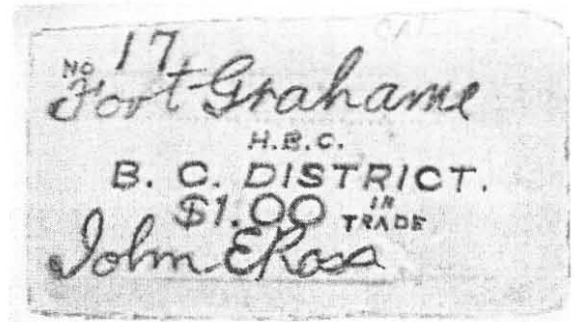 No 17
Fort Grahame
H.B.C.
B. C. DISTRICT.
$1.00 IN TRADE
John E Ross